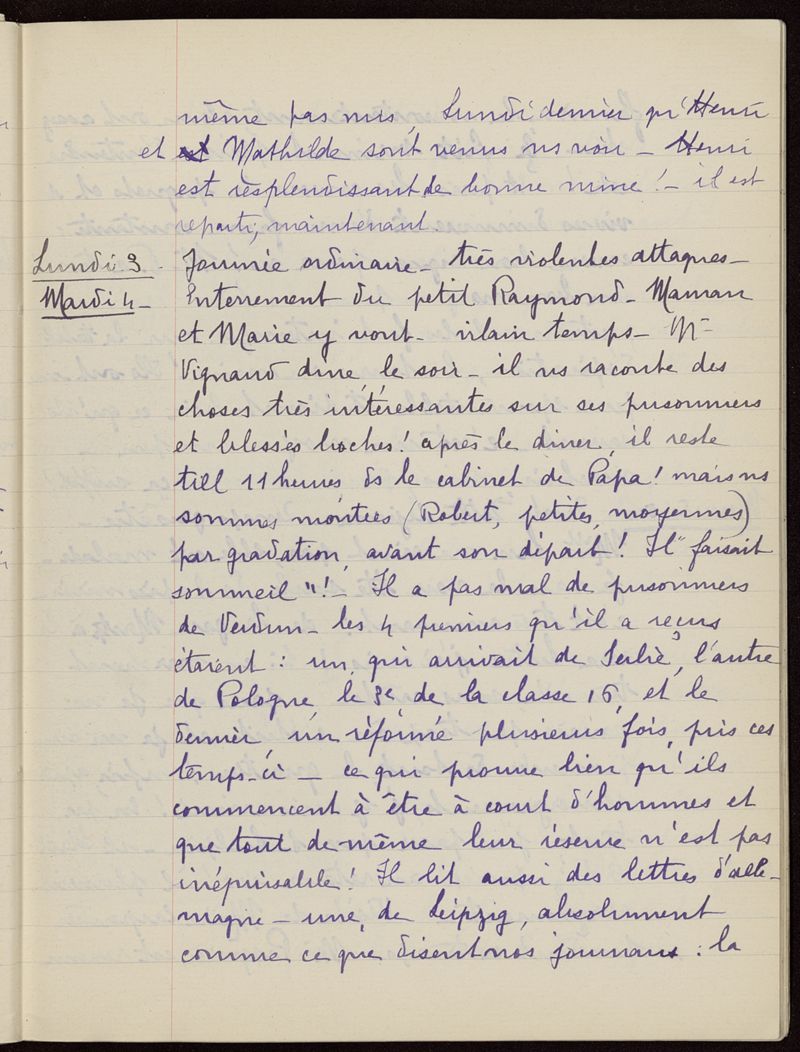 même pas mis, Lundi dernier qu'Henri
et Mathilde sont venus ns voir - Henri
est resplendissant de bonne mine! - il est
reparti, maintenant.
Lundi 3. Journée ordinaire - très violentes attaques -
Mardi 4 - Enterrement du petit Raymond - Maman
et Marie y vont - vilain temps - Mr
Vignaud dine, le soir - il ns raconte des
choses très intéressantes sur ses prisonniers
et blessés boches! après le diner, il reste
till 11 heures ds le cabinet de Papa! mais ns
sommes montées (Robert, petites, moyennes)
par gradation, avant son départ! Il "faisait
sommeil"! - Il a pas mal de prisonniers
de Verdun - les 4 premiers qu'il a reçus
étaient : un, qui arrivait de Serbie, l'autre
de Pologne, le 3e, de la classe 16, et le
dernier, un réformé plusieurs fois, pris ces
temps-ci - ce qui prouve bien qu'ils
commencent à être à court d'hommes et
que tout de même leur réserve n'est pas
inépuisable! Il lit aussi des lettres d'Alle-
magne - une, de Leipzig, absolument
comme ce que disent nos journaux : la